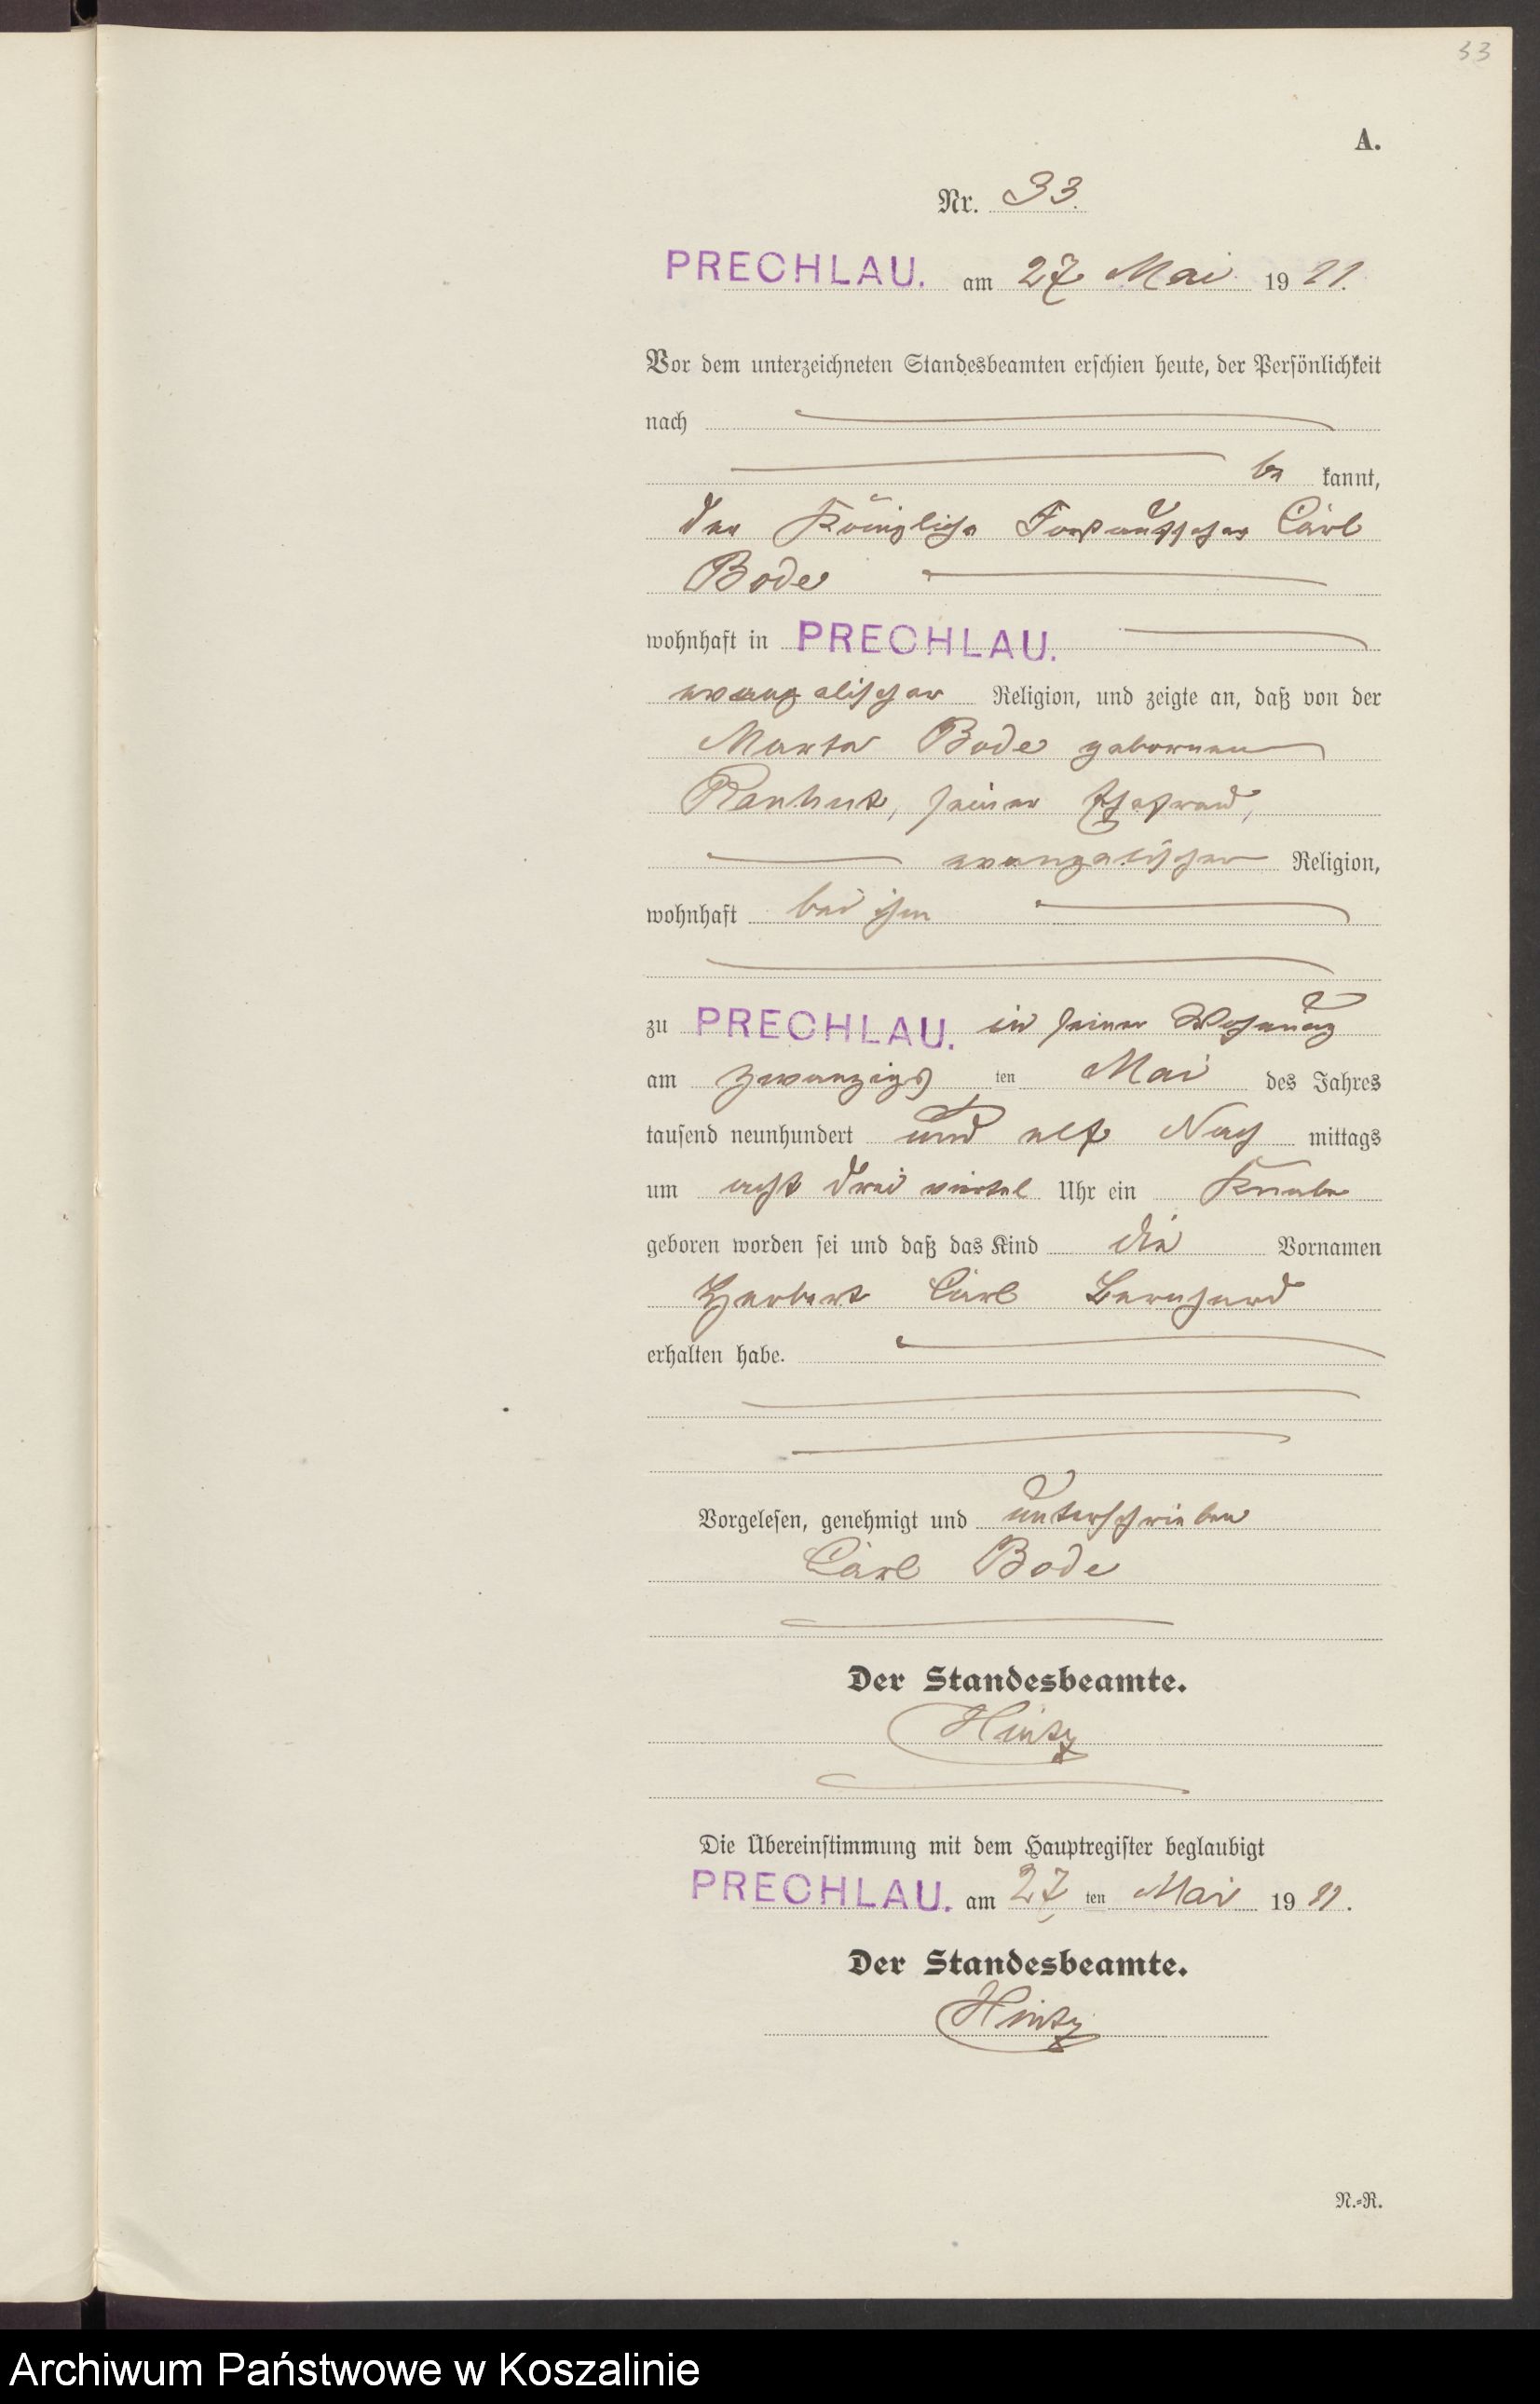 33
A.
Nr. 33.
PRECHLAU. am 27 Mai 1911.
Vor dem unterzeichneten Standesbeamten erschien heute, der Persönlichkeit
nach
be kannt,
der Königliche Forstaufseher Carl
Bode
wohnhaft in PRECHLAU.
evangelischer Religion, und zeigte an, daß von der
Marta Bode geborenen
seiner Ehefrau,
evangelischer Religion,
wohnhaft bei ihm
zu PRECHLAU. in seiner Wohnung
am zwanzigs ten Mai des Jahres
tausend neunhundert und elf Nach mittags
um acht drei viertel Uhr ein Knabe
geboren worden sei und daß das Kind die Vornamen
Herbert Carl Bernhard
erhalten habe.
Vorgelesen, genehmigt und unterschrieben
Carl Bode
Der Standesbeamte.
Hintz
Die Übereinstimmung mit dem Hauptregister beglaubigt
PRECHLAU. am 27 ten Mai 1911.
Der Standesbeamte.
Hintz
N.=R.
Archiwum Państwowe w Koszalinie